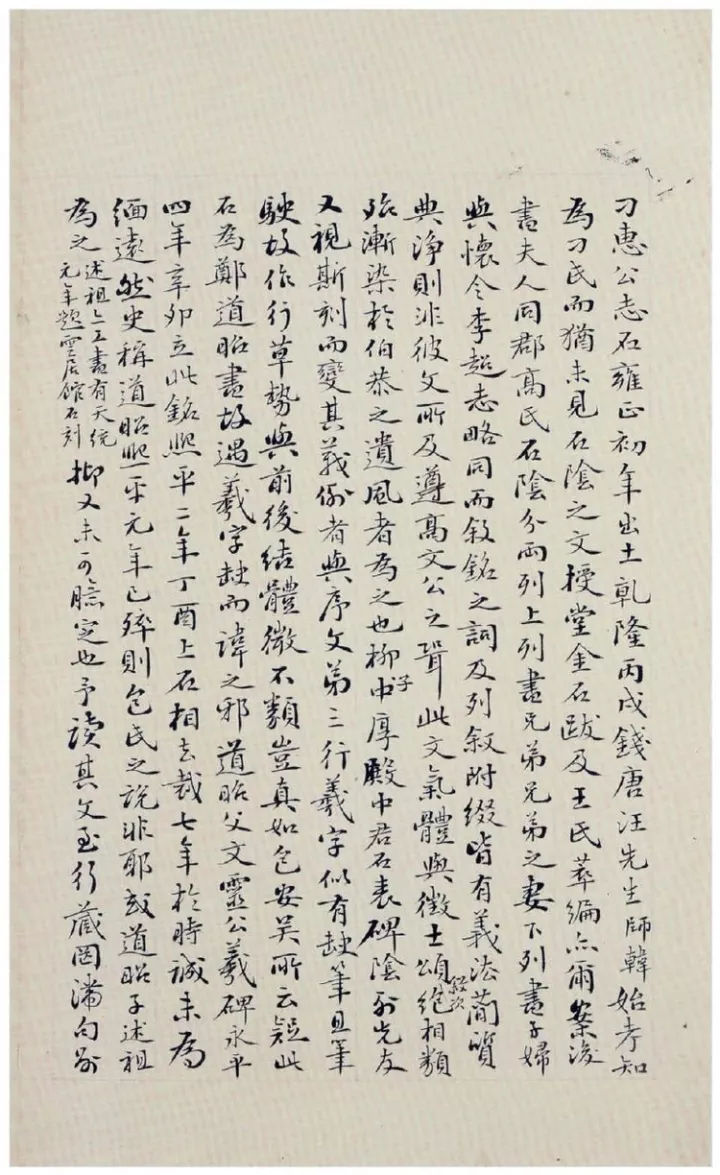 刁惠公志石雍正初年出土乾隆丙戌錢唐汪先生師韓始考知
為刁氏而猶未見石陰之文授堂金石跋及王氏萃編亦爾案後
書夫人同郡高氏石陰分兩列上列書兄弟兄弟之妻下列書子婦
與懷令李超志略同而敘銘之詞及列敘附綴皆有義法蕳質
典淨則非彼文所及遵高文公之聟此文氣體與徵士頌絕相類
敘次
殆漸染於伯恭之遺風者為之也柳子厚殿中君石表碑陰列先友
又視斯刻而變其義例者與序文第三行羲字似有缺筆且筆
駛故作行草勢與前後結體微不類豈真如包安吴所云疑此
石為鄭道昭書故遇羲字缺而諱之邪道昭父文靈公羲碑永平
四年辛卯立此銘熙平二年丁酉上石相去裁七年於時誠未為
緬遠然史稱道昭熙平元年已殂則包氏之說非耶或道昭子述祖
為之述祖亦工書有天統元年題雲居館石刻抑又未可臆定也予讀其文至行藏罔滯句別